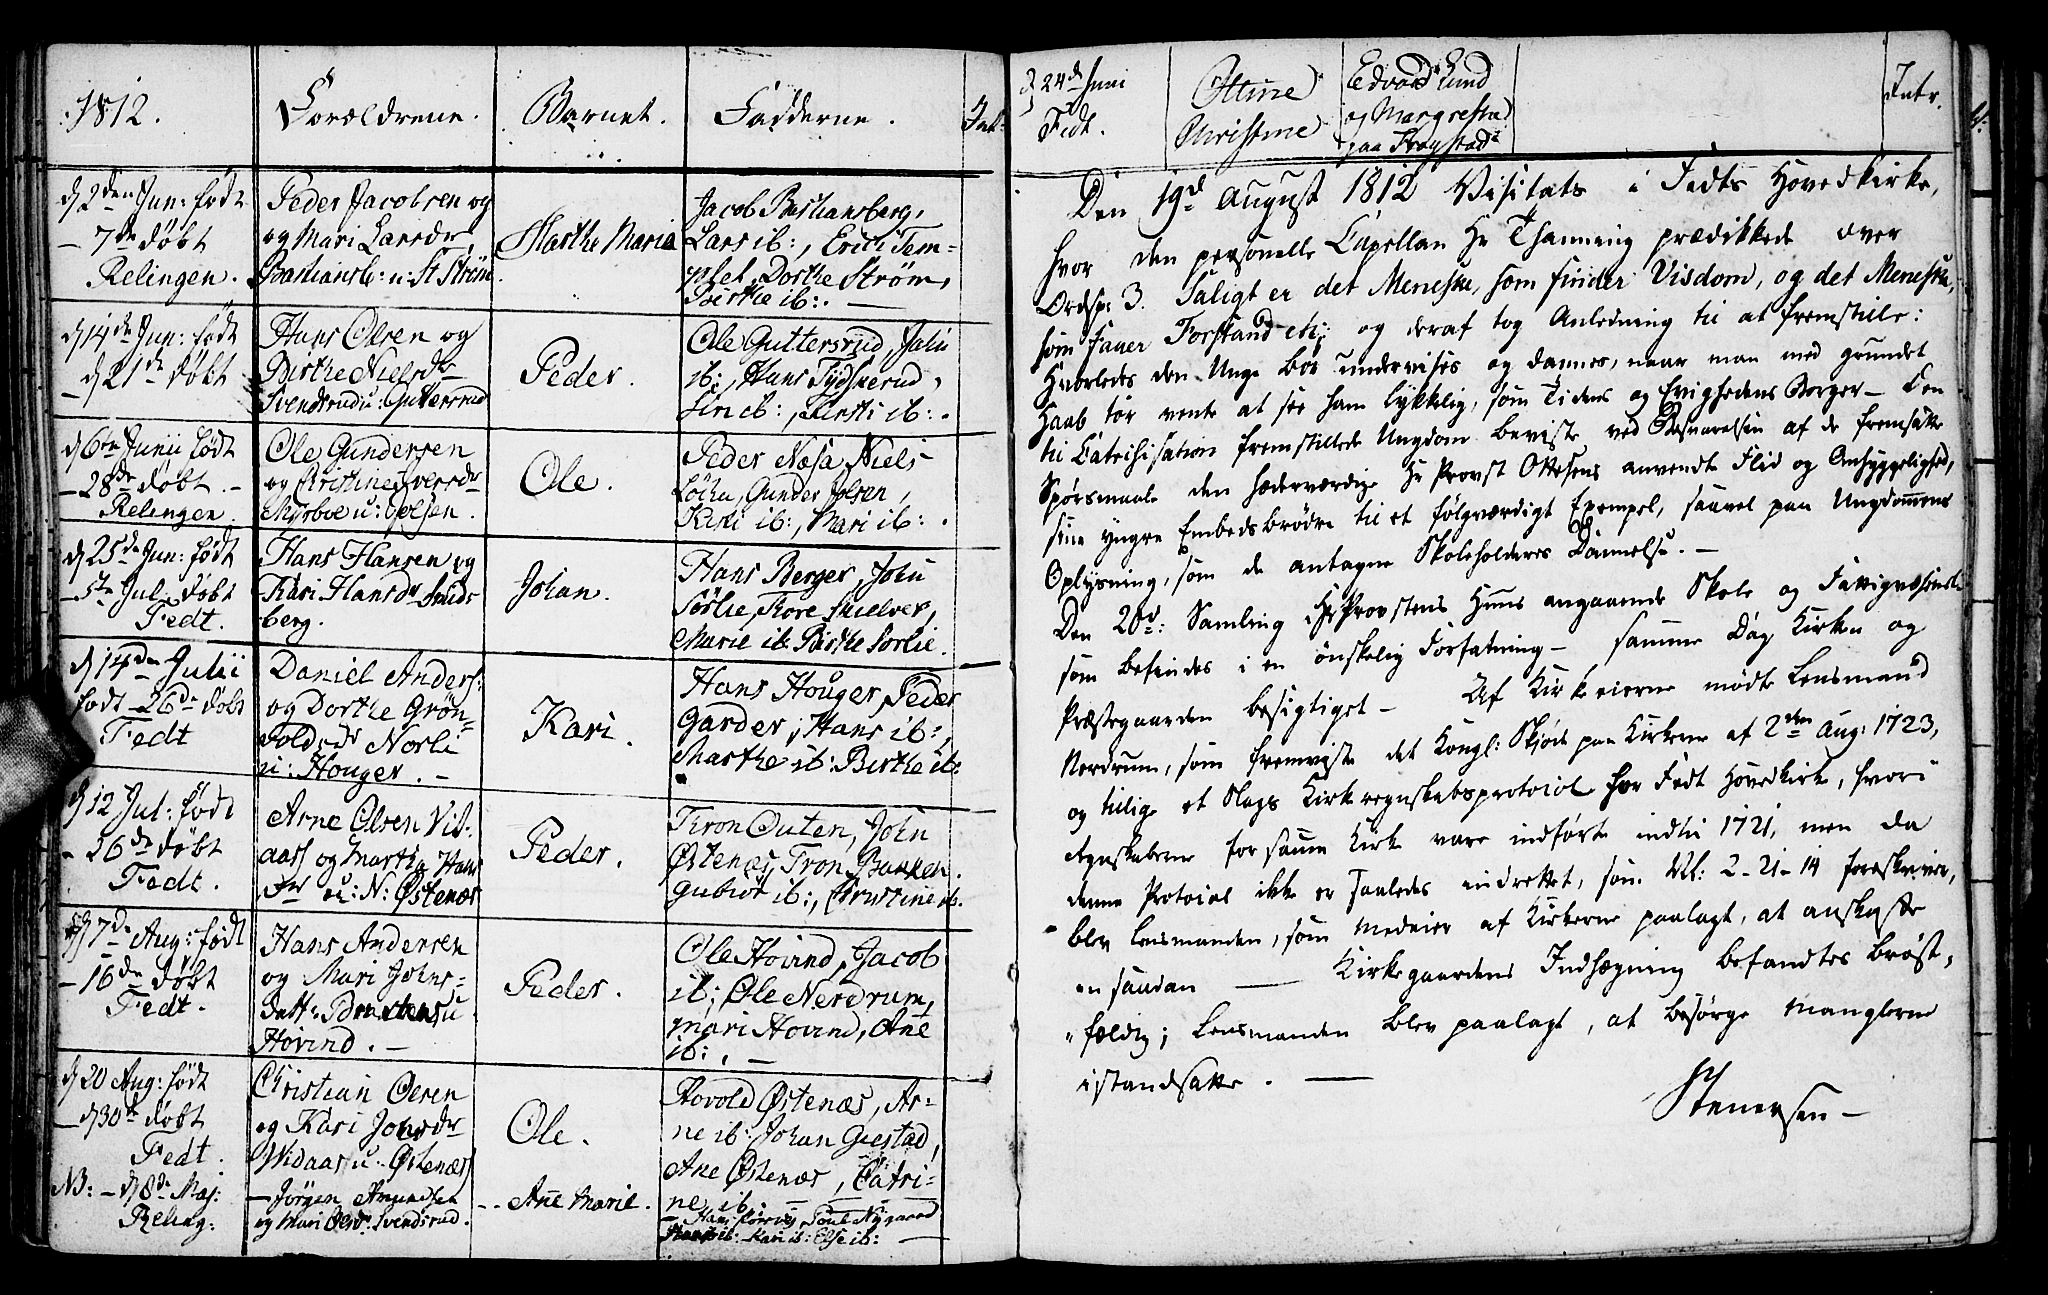 1812.
Forældrene.
Barnet.
Fadderne.
Int:
d 2den Jun: født
— 7de døbt
Relingen.
Peder Jacobsen og
og Mari Larsdr
Bastiansb: u: St Strøm
Marthe Maria
Jacob Bastiansberg,
Lars ib:, Erich Tem-
plet, Dorthe Strøm,
Birthe ib:. —
d 14de Jun: født
d 21de døbt
Hans Olsen og
Birthe Nielsdr
Svendsrud u: Guttersrud
Peder.
Ole Guttersrud, John
ib:, Hans Tydskerud,
Siri ib:, Kersti ib:.
d 6te Junii født
— 28de døbt. —
Relingen.
Ole Gundersen
og Christine Iversdr
Myrboe u: Golsen.
Ole.
Peder Næsa, Niels
Løcka, Gunder Jolsen,
Kirsti ib:, Mari ib:.
d 25de Jun: født
— 5te Jul: døbt
Fedt.
Hans Hansen og
Kari Hansdr Smids
berg.
Johan.
Hans Berger, John
Sørlie, Tore Skielver,
Marie ib: Birthe Sorlie.
d 14de Julii
født — 26de døbt
Fedt
Daniel Anders:
og Dorthe Grön-
voldsdr Norli
u: Houger. —
Kari.
Hans Houger, Peder
Garder, Hans ib:,
Marthe ib: Birthe ib:
d 12 Jul: født
- 26de døbt
Fedt.
Arne Olsen Vid-
aass og Marthe Hans
dr u: N: Østenæs
Peder.
Tron Outen, John
Østenæs, Tron Bakken,
Gubiør ib:, Christine ib.
d 7de Aug: født
— 16de døbt
Fedt.
Hans Andersen
og Mari Johns-
datt: u:
Hovind. —
Peder.
Ole Hovind, Jacob
ib:, Ole Nerdrum,
Mari Hovind, Ane
ib:. —
d 20 Aug: født
— d 30de døbt
Fedt.
Christian Olsen
og Kari Johnsdr
Widaas u: Østenæs
Ole.
Hovold Østenæs, Ar-
ne ib: Johan Giestad,
Ane Østenæs, Catri-
ne ib:
NB: — d 8de Maj:
Reling:
— Jørgen Amundsen
og Mari Olsdr: Svendsrud.
-- Ane Marie.
— Hans, Poul Nygaard
ib: Kari ib: Else ib: —
d 24de Juni
Fedt.
Ottine
Christine
Edvard Lund
og Margrethe
paa Frogstad
Intr.
Den 19d August 1812 Visitats i Fedts Hovedkirke,
hvor den personelle Capellan Hr Thanning prædikkede over
Ordsp: 3. Saligt er det Meneske, som finder Visdom, og det Meneske,
som faaer Forstand etc; og deraf tog Anledning til at fremstille:
Hvorledes den Unge bør undervises og dannes, naar man med grundet
Haab tør vente at see ham lykkelig, som Tidens og Evighedens Borger — Den
til Catechisation fremstillede Ungdom beviste ved Besvarelsen af de fremsatte
Spørsmaale den hæderværdige Hr Provst Ottesens anvendte Flid og Omhyggelighed,
sine yngre Embedsbrødre til et følgværdigt Exempel, saavel paa Ungdommens
Oplysning, som de antagne Skoleholderes Dannelse. —
Den 20d: Samling i Hr Provstens Huus angaaende Skole og Fattigvæsenet
som befindes i en ønskelig Forfatning — samme Dag Kirken og
Præstegaarden besigtiget — Af Kirkeeierne mødte Lensmand
Nordrum, som fremviste det Kongl: Skjøde paa Kirkerne af 2den Aug: 1723,
og tillige et Slags Kirkeregnskabsprotocol for Fedt Hovedkirke, hvori
Regnskaberne for samme Kirke vare indførte indtil 1721, men da
denne Protocol ikke er saaledes indrettet, som Ll: 2-21-14 foreskriver,
blev Lensmanden, som Medeier af Kirkerne paalagt, at anskaffe
en saadan — Kirkegaardens Indhægning befandtes brøst-
fældig; Lensmanden blev paalagt, at besørge Manglerne
istandsatte. —
Stenersen —